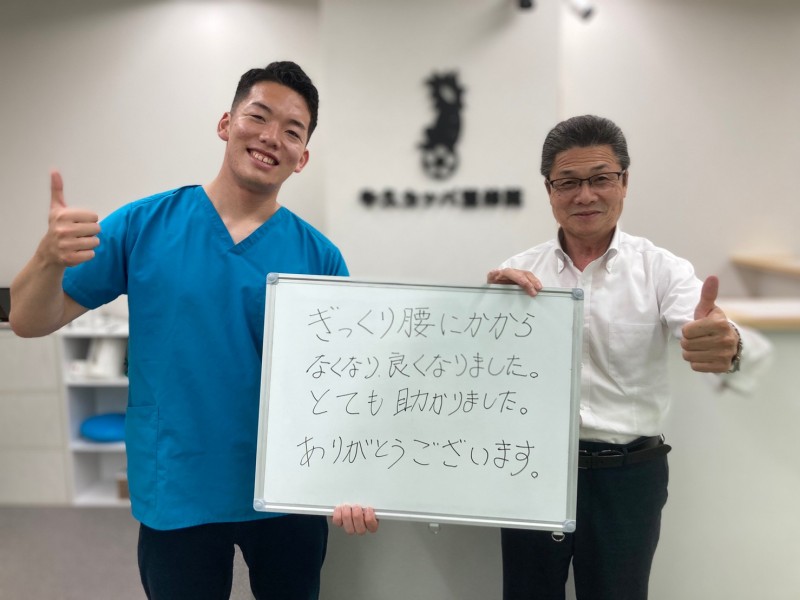 牛久カッパ整体院
ぎっくり腰にかから
なくなり、良くなりました。
とても助かりました。
ありがとうございます。